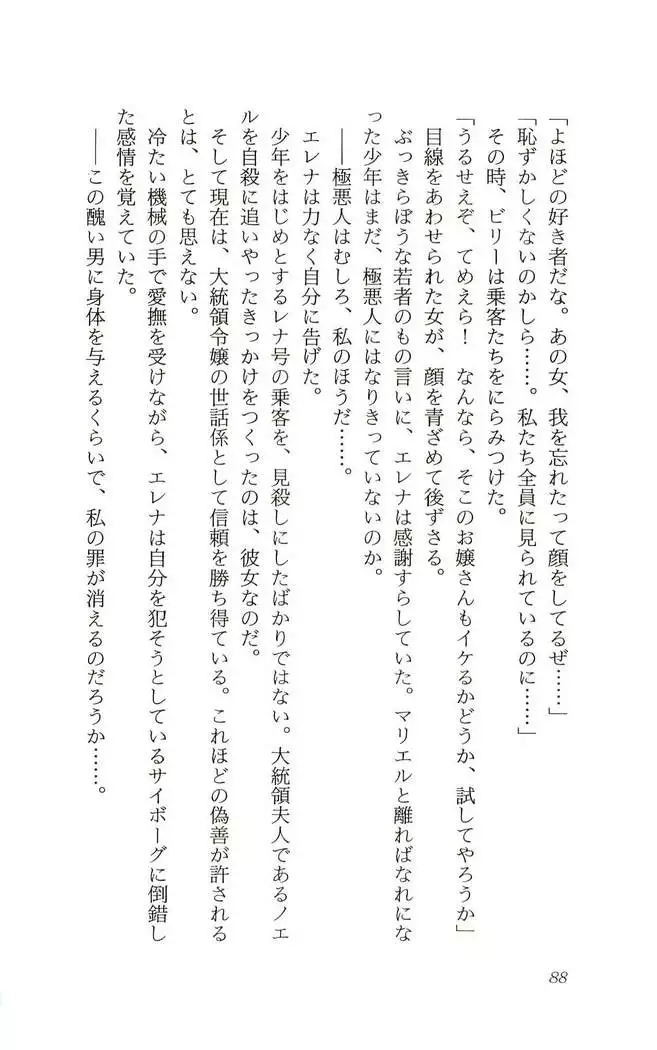 「よほどの好き者だな。あの女、我を忘れたって顔をしてるぜ……」
「恥ずかしくないのかしら……。私たち全員に見られているのに……」
その時、ビリーは乗客たちをにらみつけた。
「うるせえぞ、てめえら！　なんなら、そこのお嬢さんもイケるかどうか、試してやろうか」
目線をあわせられた女が、顔を青ざめて後ずさる。
ぶっきらぼうな若者のもの言いに、エレナは感謝すらしていた。マリエルと離ればなれにな
った少年はまだ、極悪人にはなりきっていないのか。
――極悪人はむしろ、私のほうだ……。
エレナは力なく自分に告げた。
少年をはじめとするレナ号の乗客を、見殺しにしたばかりではない。大統領夫人であるノエ
ルを自殺に追いやったきっかけをつくったのは、彼女なのだ。
そして現在は、大統領令嬢の世話係として信頼を勝ち得ている。これほどの偽善が許される
とは、とても思えない。
冷たい機械の手で愛撫を受けながら、エレナは自分を犯そうとしているサイボーグに倒錯し
た感情を覚えていた。
――この醜い男に身体を与えるくらいで、私の罪が消えるのだろうか……。
88